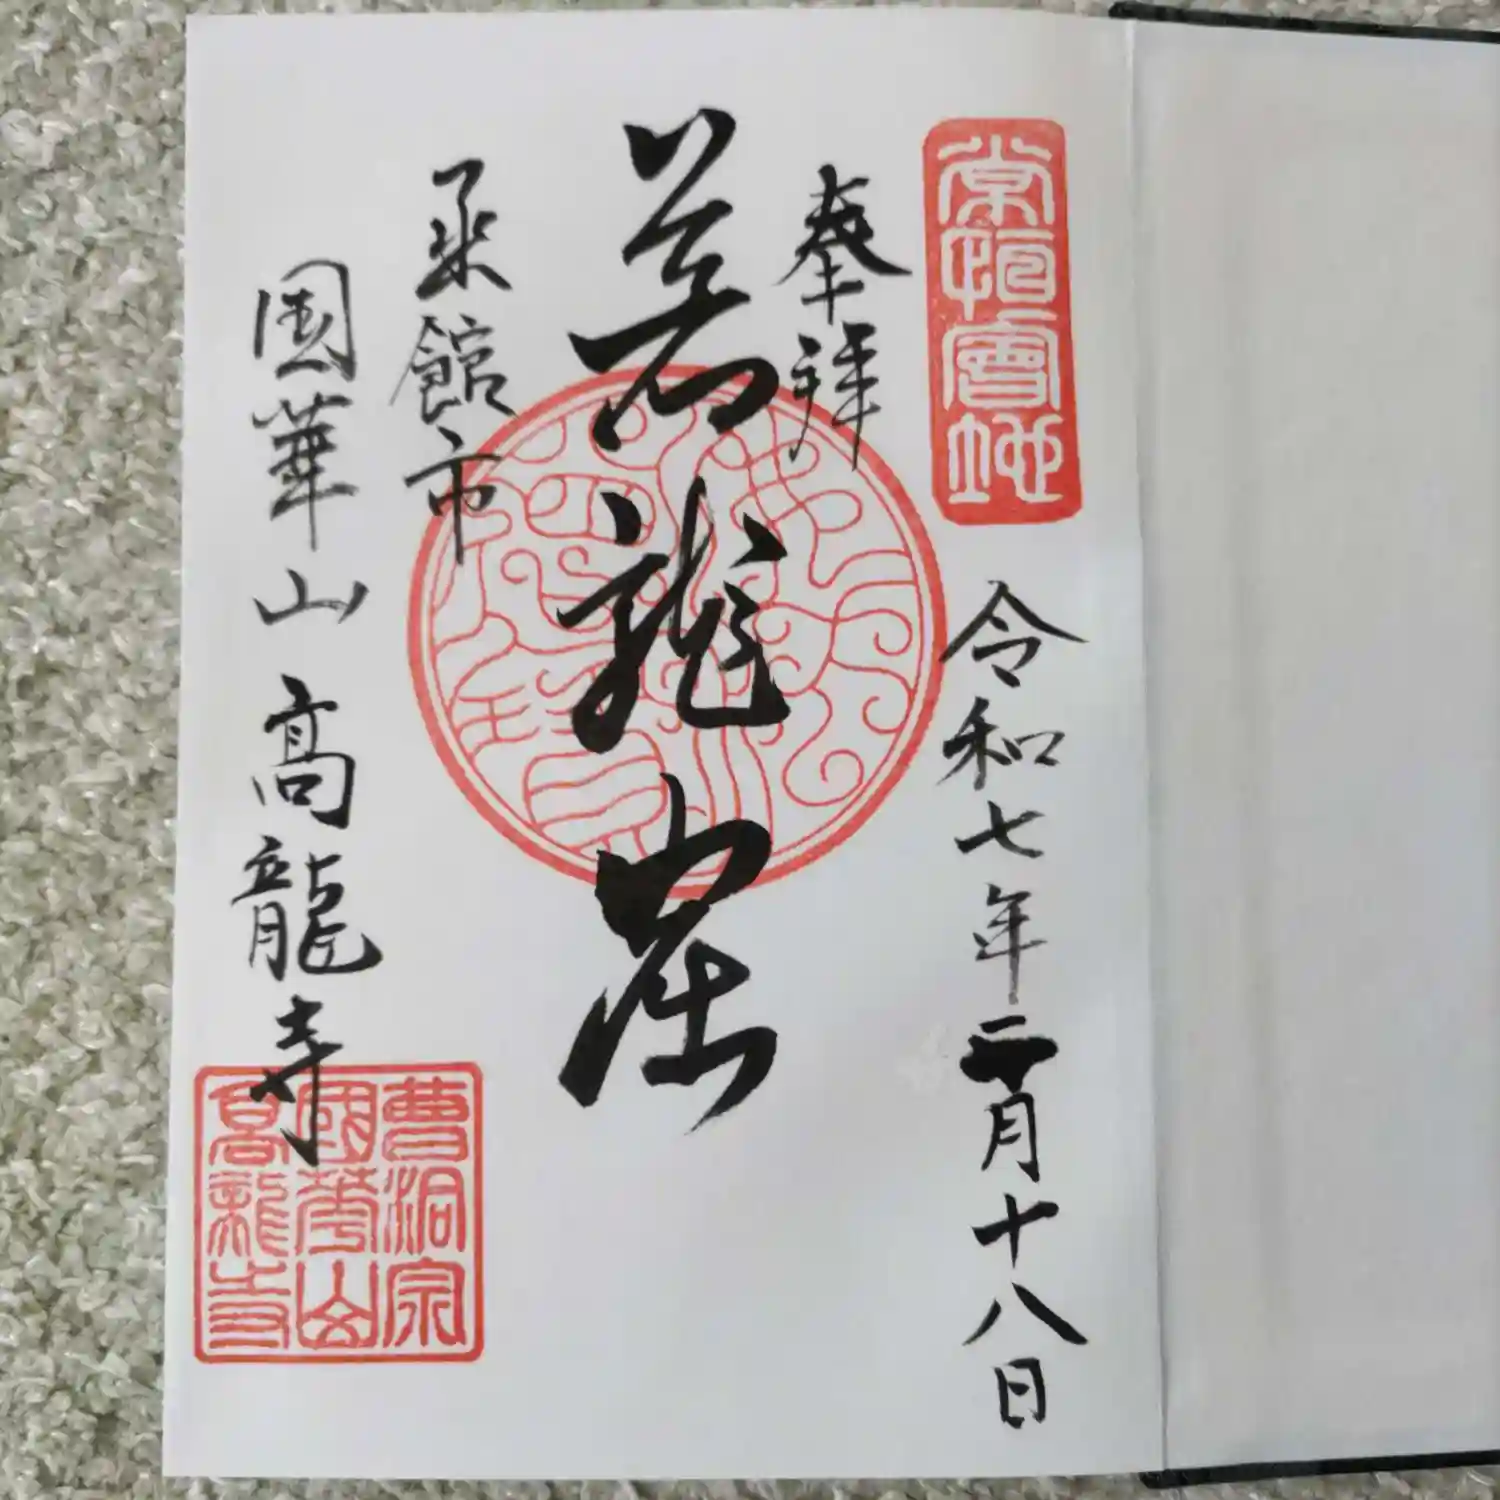 常恒會地
奉拝
令和七年二月十八日
龍
函館市
國華山 高龍寺
曹洞宗
國華山
高龍寺